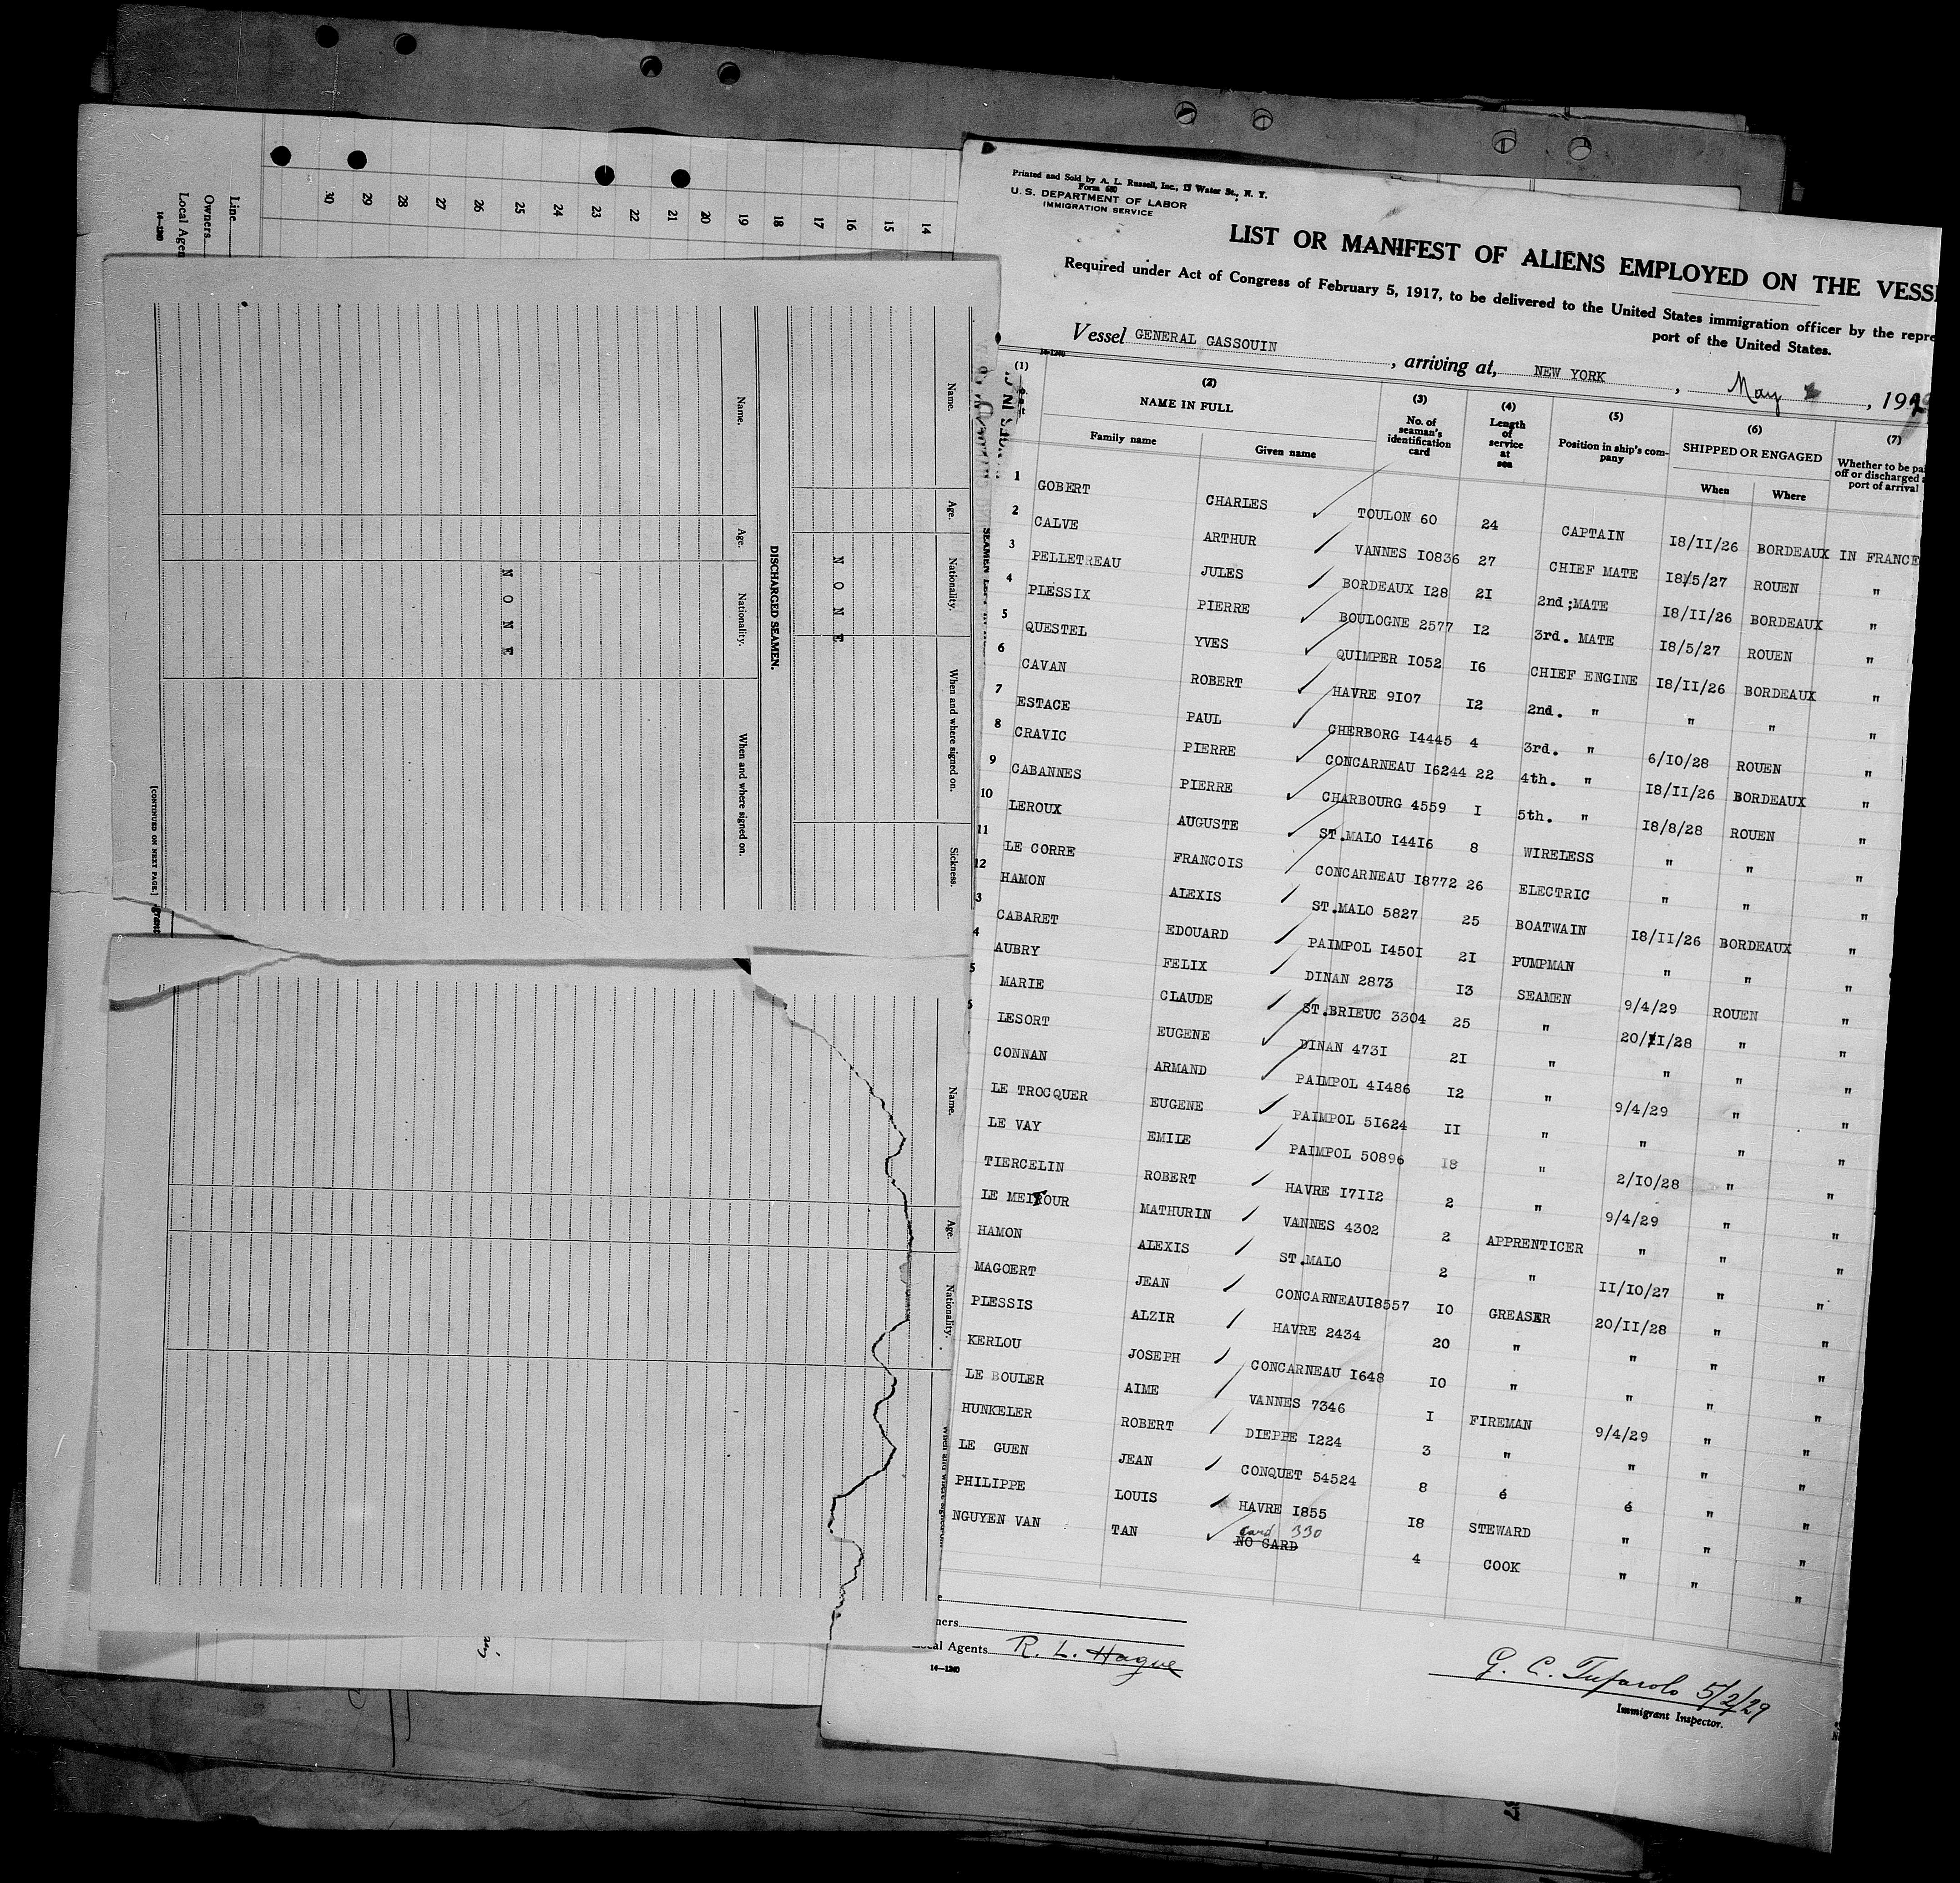 Printed and Sold by A. L. Russell, Inc., 13 Water St., N. Y.
Form 680
U. S. DEPARTMENT OF LABOR
IMMIGRATION SERVICE
LIST OR MANIFEST OF ALIENS EMPLOYED ON THE VESS
Required under Act of Congress of February 5, 1917, to be delivered to the United States immigration officer by the repre
port of the United States.
Vessel GENERAL GASSOUIN, arriving at, NEW YORK, May , 1929
14-1240
(1) (2) (3) (4) (5) (6) (7)
NAME IN FULL No. of seaman's identification card Length of service at sea Position in ship's company SHIPPED OR ENGAGED Whether to be pai off or discharged port of arrival
Family name Given name When Where
1 GOBERT CHARLES TOULON 60 24 CAPTAIN 18/II/26 BORDEAUX IN FRANCE
2 CALVE ARTHUR VANNES I0836 27 CHIEF MATE 18/5/27 ROUEN "
3 PELLETREAU JULES BORDEAUX I28 2I 2nd;MATE 18/II/26 BORDEAUX "
4 PLESSIX PIERRE BOULOGNE 2577 I2 3rd. MATE I8/5/27 ROUEN "
5 QUESTEL YVES QUIMPER I052 I6 CHIEF ENGINE I8/II/26 BORDEAUX "
6 CAVAN ROBERT HAVRE 9I07 I2 2nd. " " " "
7 ESTACE PAUL CHERBORG I4445 4 3rd. " 6/I0/28 ROUEN "
8 CRAVIC PIERRE CONCARNEAU I6244 22 4th. " I8/II/26 BORDEAUX "
9 CABANNES PIERRE CHARBOURG 4559 I 5th. " I8/8/28 ROUEN "
10 LEROUX AUGUSTE ST.MALO I44I6 8 WIRELESS " " "
11 LE CORRE FRANCOIS CONCARNEAU I8772 26 ELECTRIC " " "
12 HAMON ALEXIS ST.MALO 5827 25 BOATWAIN I8/II/26 BORDEAUX "
3 CABARET EDOUARD PAIMPOL I450I 2I PUMPMAN " " "
4 AUBRY FELIX DINAN 2873 I3 SEAMEN 9/4/29 ROUEN "
5 MARIE CLAUDE ST.BRIEUC 3304 25 " 20/II/28 " "
6 LESORT EUGENE DINAN 473I 2I " " " "
CONNAN ARMAND PAIMPOL 4I486 I2 " 9/4/29 " "
LE TROCQUER EUGENE PAIMPOL 5I624 II " " " "
LE VAY EMILE PAIMPOL 50896 I8 " 2/I0/28 " "
TIERCELIN ROBERT HAVRE I7II2 2 " 9/4/29 " "
LE MEITOUR MATHURIN VANNES 4302 2 APPRENTICER " " "
HAMON ALEXIS ST.MALO 2 " II/I0/27 " "
MAGOERT JEAN CONCARNEAUI8557 I0 GREASER 20/II/28 " "
PLESSIS ALZIR HAVRE 2434 20 " " " "
KERLOU JOSEPH CONCARNEAU I648 I0 " " " "
LE BOULER AIME VANNES 7346 I FIREMAN 9/4/29 " "
HUNKELER ROBERT DIEPPE I224 3 " " " "
LE GUEN JEAN CONQUET 54524 8 é é " "
PHILIPPE LOUIS HAVRE I855 I8 STEWARD " " "
NGUYEN VAN TAN NO CARD card 330 4 COOK " " "
ners
al Agents R. L. Hague
14-1240
G. C. Tufarolo 5/2/29
Immigrant Inspector.
Line
Owners
Local Agen
14-1240
30 29 28 27 26 25 24 23 22 21 20 19 18 17 16 15 14
Name. Age. Nationality. When and where signed on. Sickness.
NONE
DISCHARGED SEAMEN.
Name. Age. Nationality. When and where signed on.
NONE
[CONTINUED ON NEXT PAGE.]
Name. Age. Nationality. When and where signed on.